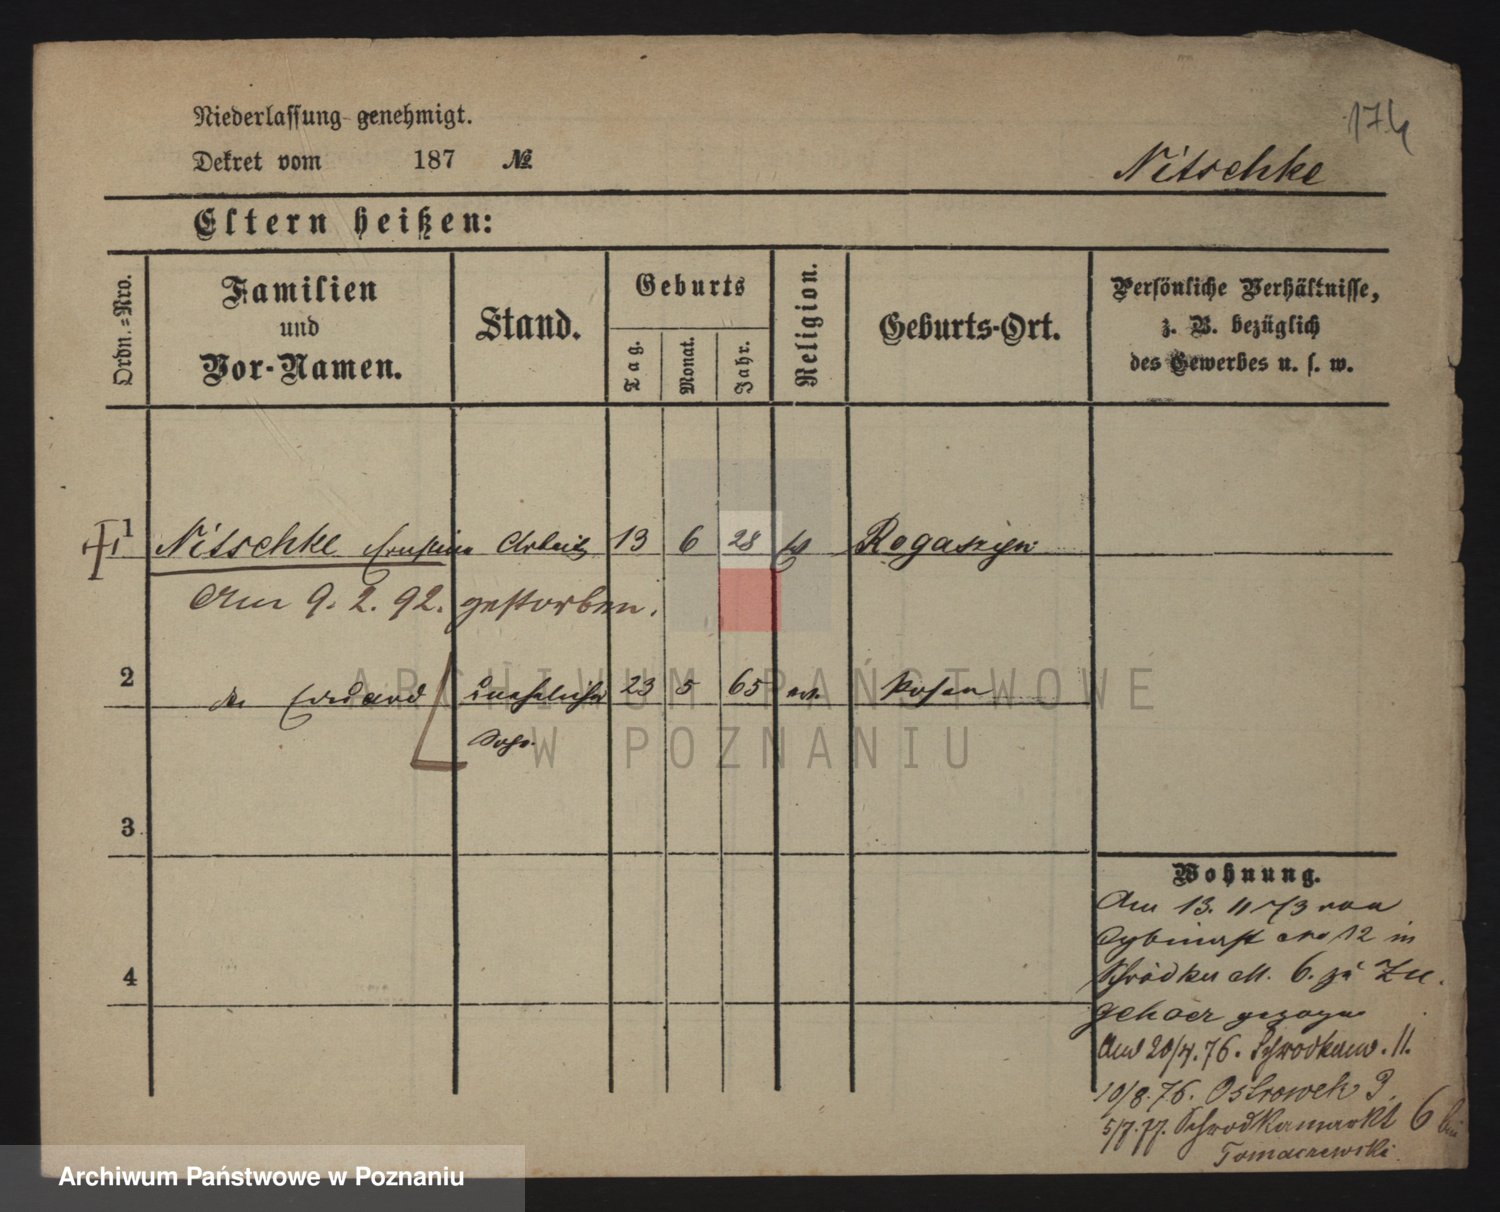 174
Niederlassung genehmigt.
Dekret vom 187 №
Nitschke
Eltern heißen:
Ordn.=Nro.
Familien
und
Vor-Namen.
Stand.
Geburts
Tag.
Monat.
Jahr.
Religion.
Geburts-Ort.
Persönliche Verhältnisse,
z. B. bezüglich
des Gewerbes u. s. w.
1 Nitschke Ernstine Arbeit 13 6 28
Am 9. 2. 92. gestorben.
2 Eduard unehelicher 23 5 65 Posen
Sohn
ARCHIWUM PAŃSTWOWE
W POZNANIU
3
4
Wohnung.
Am 13. 11 73 von
12 in
Schrodka 6. zu Zu
gehoer gezogen
Am 20/4. 76. 11.
10/8. 76. Ostrowek 3.
5/7. 77. Schrodkamarkt 6 bei
Tomaczewski
Archiwum Państwowe w Poznaniu